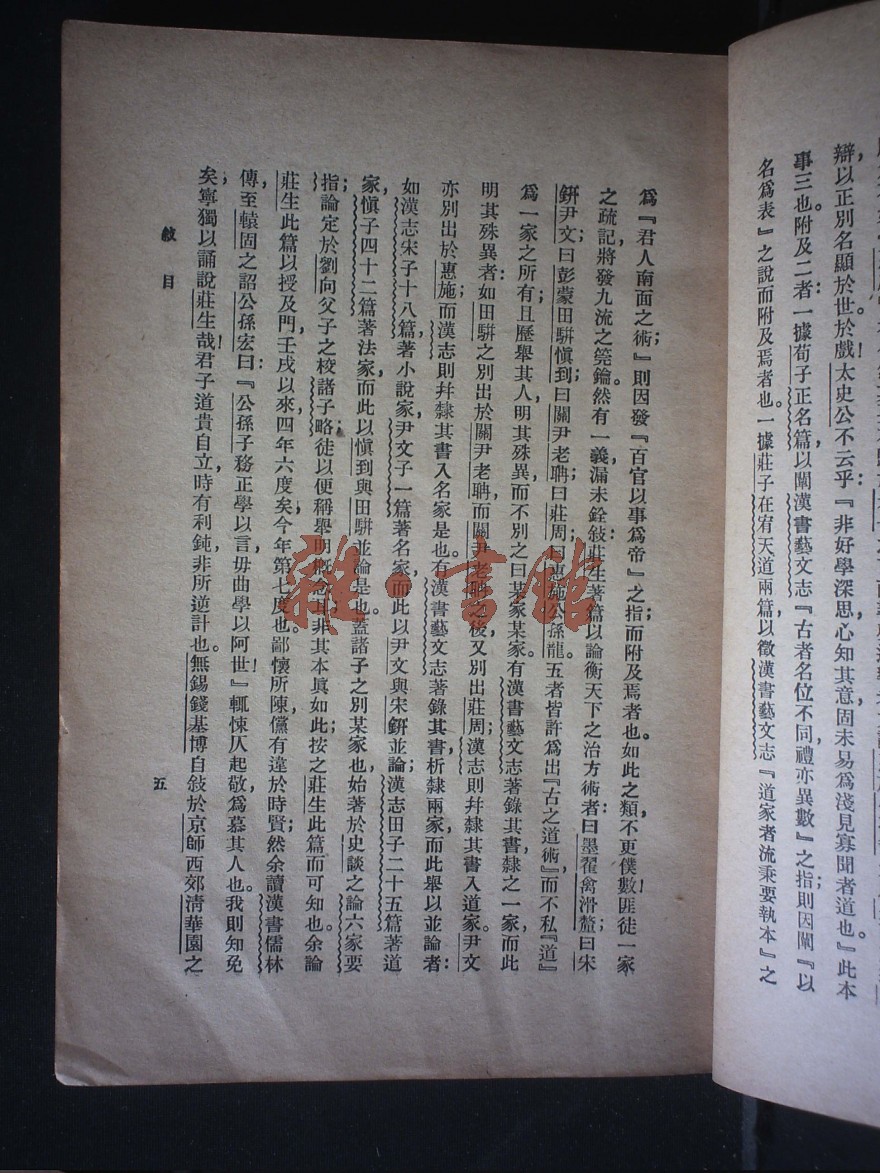 辯,以正別名顯於世。於戲!太史公不云乎:『非好學深思,心知其意,固未易爲淺見寡聞者道也。』此本
事三也。附及二者:一據荀子正名篇以闡漢書藝文志『古者名位不同,禮亦異數』之指;則因闡『以
名爲表』之說而附及焉者也。一據莊子在宥天道兩篇以徵漢書藝文志『道家者流秉要執本』之
爲『君人南面之術』則因發『百官以事爲帝』之指而附及焉者也。如此之類,不更僕數!匪徒一家
之疏記,將發九流之筦鑰。然有一義,漏未銓敍:莊生著篇以論衡天下之治方術者:曰墨翟禽滑釐;曰宋
鈃尹文;曰彭蒙田駢愼到;曰關尹老聃;曰莊周;曰惠施公孫龍。五者皆許爲出『古之道術』而不私『道』
爲一家之所有;且歷舉其人,明其殊異,而不別之曰某家某家。有漢書藝文志著錄其書,隸之一家,而此
明其殊異者:如田駢之別出於關尹老聃,而關尹老聃之後,又別出莊周;漢志則幷隸其書入道家。尹文
亦別出於惠施;而漢志則幷隸其書入名家是也。有漢書藝文志著錄其書,析隸兩家,而此舉以並論者:
如漢志宋子十八篇,著小說家,尹文子一篇著名家,而此以尹文與宋鈃並論;漢志田子二十五篇著道
家,愼子四十二篇著法家,而此以愼到與田駢並論是也。蓋諸子之別某家也,始著於史談之論六家要
指;論定於劉向父子之校諸子略;徒以便稱舉明槪念耳;非其本眞如此;按之莊生此篇而可知也。余論
莊生此篇以授及門,壬戌以來,四年六度矣;今年第七度也。鄙懷所陳,儻有違於時賢;然余讀漢書儒林
傳,至轅固之詔公孫宏曰:『公孫子務正學以言,毋曲學以阿世!』輒悚仄起敬,爲慕其人也。我則知免
矣;寧獨以誦說莊生哉!君子道貴自立,時有利鈍,非所逆計也。無錫錢基博自敍於京師西郊淸華園之
敍目
五
雜·書館